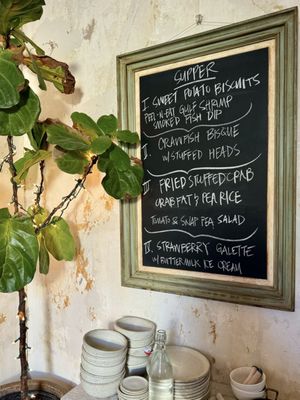 SUPPER
I. SWEET POTATO BISCUITS
PEEL-N-EAT GULF SHRIMP
SMOKED FISH DIP
II. CRAWFISH BISQUE
W/ STUFFED HEADS
III. FRIED STUFFED CRAB
CRAB FAT & PEA RICE
TOMATO & SNAP PEA SALAD
IV. STRAWBERRY GALETTE
W/ BUTTERMILK ICE CREAM